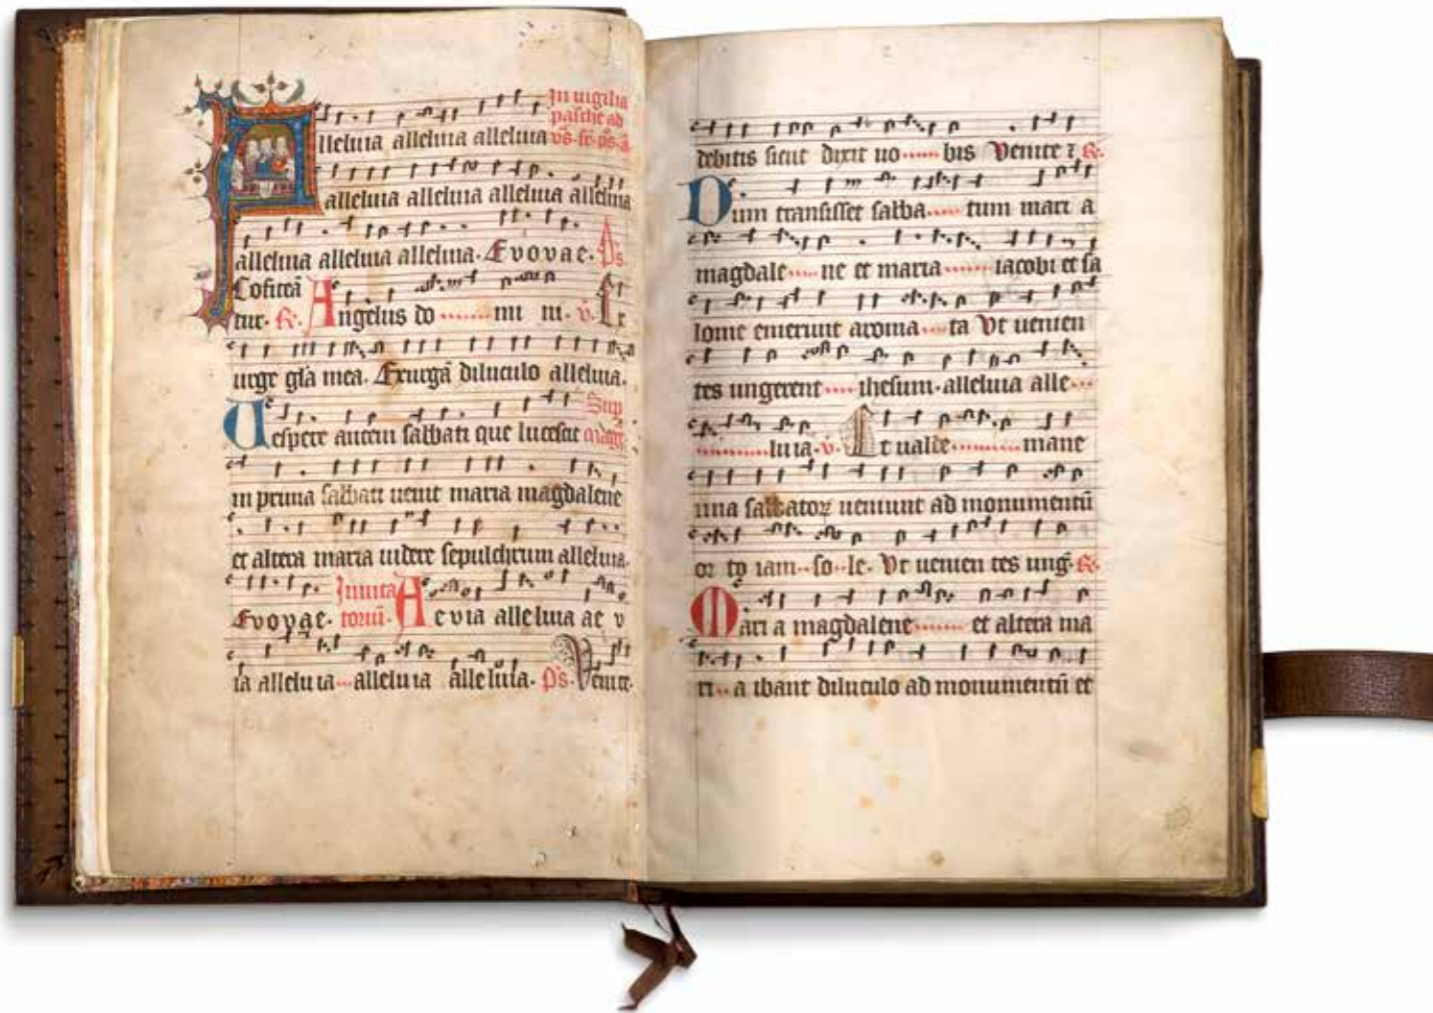 Alleluia alleluia alleluia In uigilia pasche ad vs. se. ps. a.
alleluia alleluia alleluia alleluia
alleluia alleluia alleluia. Evovae. Ps.
Cofiteā
tur. R. Angelus do mi ni. v. Ex
urge gla mea. Exurgā diluculo alleluia.
Uespere autem sabbati que lucescit Sup magn
in prima sabbati uenit maria magdalene
et altera maria uidere sepulchrum alleluia.
Evovae. Inuita toriū. Ae via alle luia ae v
ia allelu ia alleluia alleluia. Ps. Venite.
debitis sicut dixit uo bis Venite ⁊ R.
Dum transisset sabba tum mari a
magdale ne et maria iacobi et sa
lome emerunt aroma ta Vt uenien
tes ungerent ihesum. alleluia alle
luia. v. Et ualde mane
una sabbatoꝝ ueniunt ad monumentū
or to iam so le. Vt uenien tes ung. R.
Mari a magdalene et altera ma
ri a ibant diluculo ad monumentū et